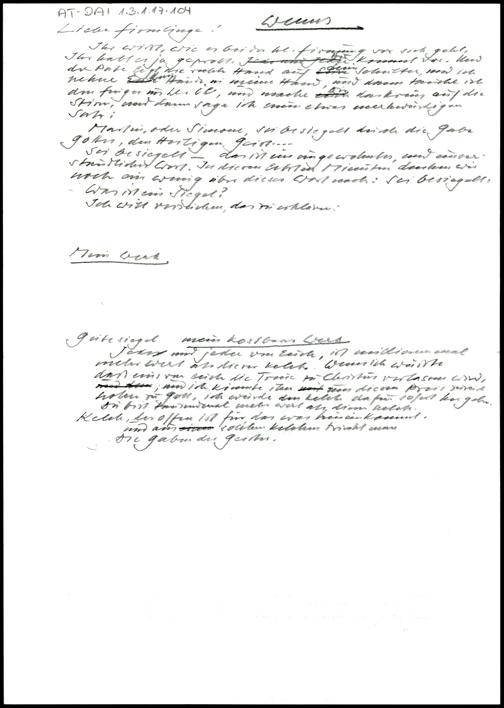 AT-DAI 1.3.1.17.104
Wenns
Liebe Firmlinge!
Ihr wisst, wie es bei der hl. Firmung vor sich geht,
Ihr habt es ja geprobt. kommt vor. Und
der Pate legt die rechte Hand auf Schulter, und ich
nehme Hand in meine Hand, und dann tauche ich
den Finger ins hl. Öl, und mache das Kreuz auf die
Stirn, und dann sage ich einen etwas merkwürdigen
Satz:
Martin, oder Simone, sei besiegelt durch die Gabe
Gottes, den Heiligen Geist...
Sei besiegelt – das ist ein ungewohntes, und unver-
ständliches Wort. In diesen letzten Minuten denken wir
noch ein wenig über dieses Wort nach: Sei besiegelt.
Was ist ein Siegel?
Ich will versuchen, das zu erklären:
Mein Werk
Gütesiegel mein kostbares Werk
Jeder und jede von Euch, ist millionenmal
mehr wert als dieser Kelch. Wenn ich wüsste
dass eins von euch die Treue zu Christus verlassen wird,
und ich könnte ihn um diesen Preis zurück
holen zu Gott, ich würde den Kelch dafür sofort hergeben.
Du bist mehr wert als dieser Kelch.
Kelch, der offen ist für das was hineinkommt.
und aus solchen Kelchen trinkt man
Die Gaben des Geistes.